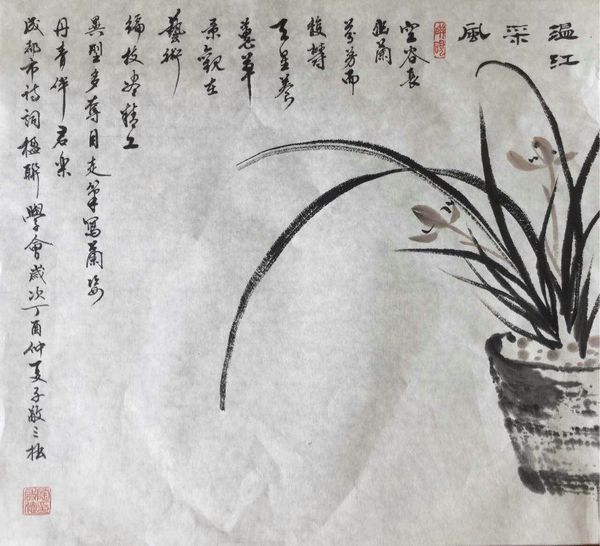 溫江
采
風
空谷長
幽蘭
芬芳而
馥
養
蕙草
景觀在
藝術
編枝精工
異型多奪目走筆寫蘭姿
丹青伴君樂
成都市詩詞楹聯學會歲次丁酉仲夏子敬